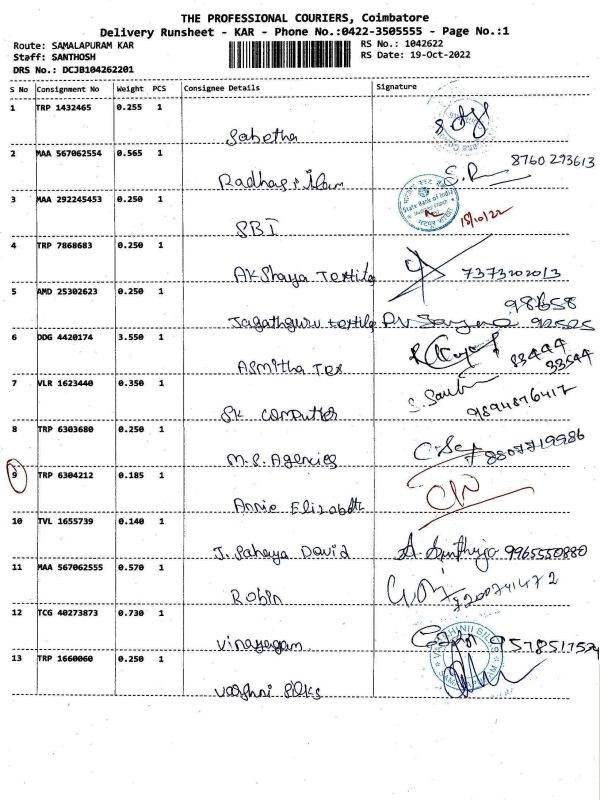 THE PROFESSIONAL COURIERS, Coimbatore
Delivery Runsheet - KAR - Phone No.:0422-3505555 - Page No.:1
Route: SAMALAPURAM KAR RS No.: 1042622
Staff: SANTHOSH RS Date: 19-Oct-2022
DRS No.: DCJB104262201
S No Consignment No Weight PCS Consignee Details Signature
1 TRP 1432465 0.255 1
Sabetha
2 MAA 567062554 0.565 1
8760293613
3 MAA 292245453 0.250 1
State Bank of India
SBI 18/10/22
4 TRP 7868683 0.250 1
Akshaya Textile 7373202013
5 AMD 25302623 0.250 1
Jagathguru textile
6 DDG 4420174 3.550 1
Asmitha Tex 83444
33544
7 VLR 1623440 0.350 1
SK computer 9894876417
8 TRP 6303680 0.250 1
M.S. Agencies 8807719986
9 TRP 6304212 0.185 1
Annie Elizabeth
10 TVL 1655739 0.140 1
J. Sahaya David 9965550880
11 MAA 567062555 0.570 1
Robin 7200741472
12 TCG 40273873 0.730 1
Vinayagam
13 TRP 1660060 0.250 1
silks